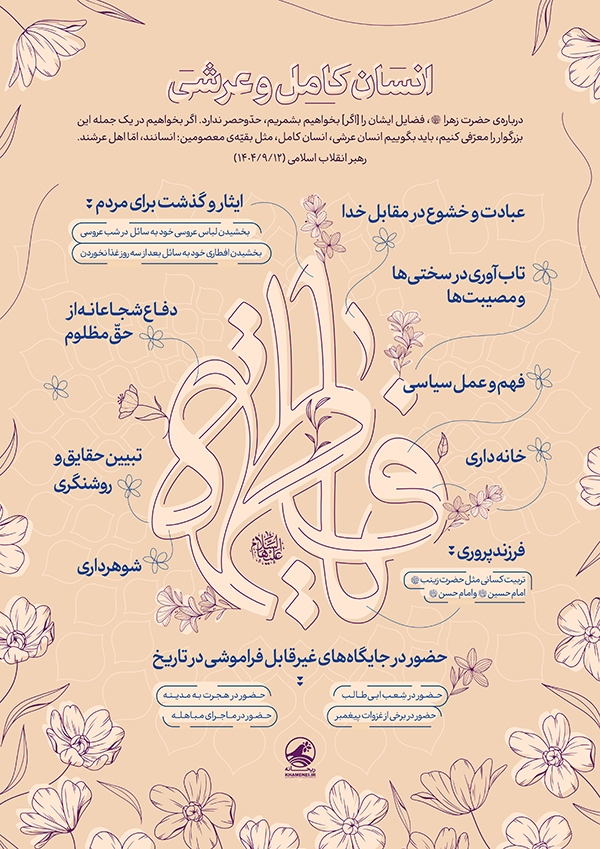 انسان کامل و عرشی
درباره‌ی حضرت زهرا سلام‌الله‌علیها، فضایل ایشان را [اگر] بخواهیم بشمریم، حدّوحصر ندارد. اگر بخواهیم در یک جمله این
بزرگوار را معرّفی کنیم، باید بگوییم انسان عرشی، انسان کامل، مثل بقیّه‌ی معصومین؛ انسانند، امّا اهل عرشند.
رهبر انقلاب اسلامی (۱۴۰۴/۹/۱۲)
عبادت و خشوع در مقابل خدا
تاب‌آوری در سختی‌ها
و مصیبت‌ها
فهم و عمل سیاسی
خانه‌داری
فرزندپروری
تربیت کسانی مثل حضرت زینب
امام حسین و امام حسن
ایثار و گذشت برای مردم
بخشیدن لباس عروسی خود به سائل در شب عروسی
بخشیدن افطاری خود به سائل بعد از سه روز غذا نخوردن
دفاع شجاعانه از
حقّ مظلوم
تبیین حقایق و
روشنگری
شوهرداری
فاطمه
علیها السلام
حضور در جایگاه‌های غیرقابل فراموشی در تاریخ
حضور در شعب ابی‌طالب
حضور در هجرت به مدینه
حضور در برخی از غزوات پیغمبر
حضور در ماجرای مباهله
ریحانه
KHAMENEI.IR